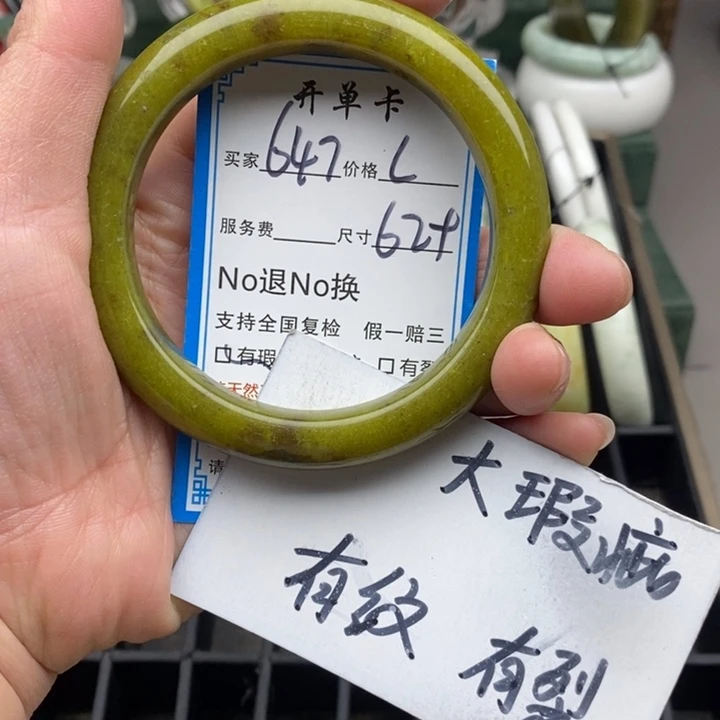 开单卡
买家 647 价格 L
服务费 尺寸 62+
No退No换
支持全国复检 假一赔三
口有瑕 口有裂
天然
请
大瑕疵
有纹 有裂